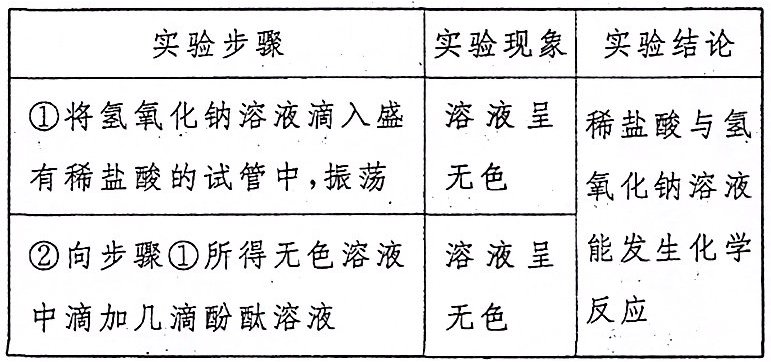 实验步骤 实验现象 实验结论
①将氢氧化钠溶液滴入盛
有稀盐酸的试管中,振荡
溶液呈
无色
②向步骤①所得无色溶液
中滴加几滴酚酞溶液
溶液呈
无色
稀盐酸与氢
氧化钠溶液
能发生化学
反应